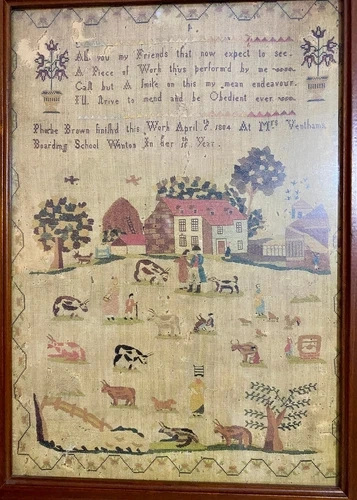 All you my Friends that now expect to see.
A Piece of Work thus perform'd by me
Cast but A Smile on this my mean endeavour.
I'll strive to mend and be Obedient ever
Phœbe Brown finish'd this Work April 1804 At Mrs Venthams
Boarding School Winton In her Year.